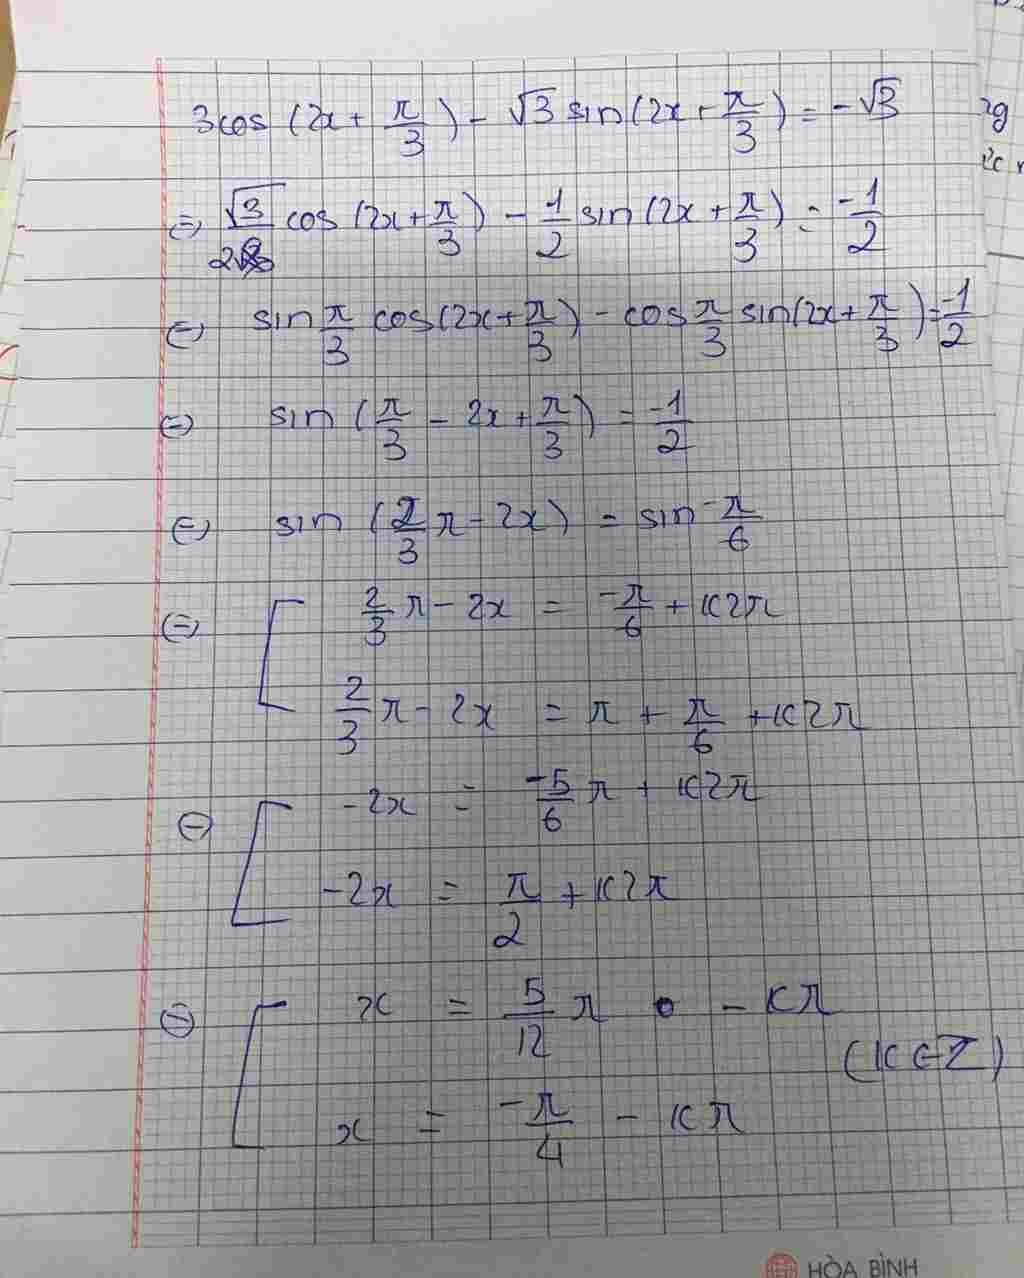 3cos(2x + π/3) - √3 sin(2x + π/3) = -√3
⇔ √3/2 cos(2x + π/3) - 1/2 sin(2x + π/3) = -1/2
⇔ sin π/3 cos(2x + π/3) - cos π/3 sin(2x + π/3) = -1/2
⇔ sin(π/3 - 2x + π/3) = -1/2
⇔ sin(2/3 π - 2x) = sin -π/6
⇔ [ 2/3 π - 2x = -π/6 + k2π
2/3 π - 2x = π + π/6 + k2π
⇔ [ -2x = -5/6 π + k2π
-2x = π/2 + k2π
⇔ [ x = 5/12 π - kπ
(k ∈ Z)
x = -π/4 - kπ
HÒA BÌNH